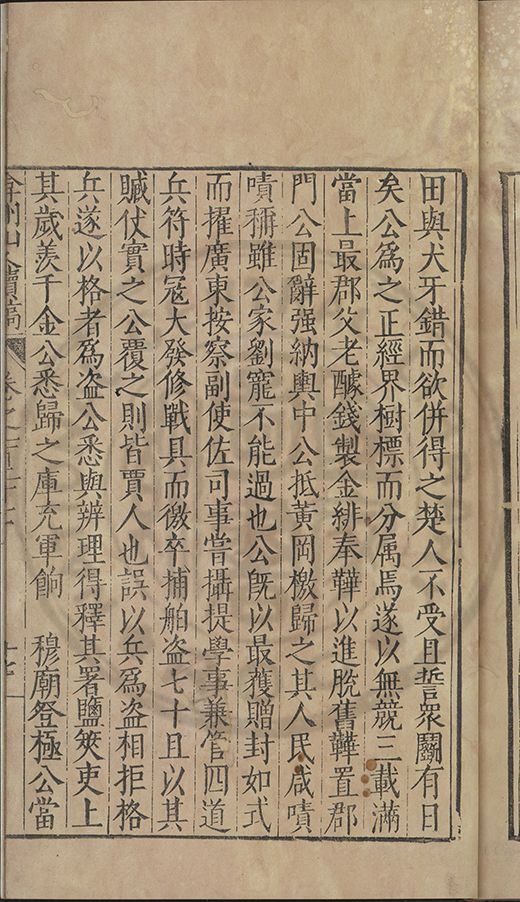 田與犬牙錯而欲併得之楚人不受且誓衆鬭有日
矣公爲之正經界樹標而分属焉遂以無競三載滿
當上最郡父老醵錢製金緋奉鞾以進脫舊鞾置郡
門公固辭强納輿中公抵黃岡檄歸之其人民咸嘖
嘖稱雖公家劉寵不能過也公旣以最獲贈封如式
而擢廣東按察副使佐司事嘗攝提學事兼管四道
兵符時冦大發修戰具而徼卒捕舶盗七十且以其
贓仗實之公覆之則皆賈人也誤以兵爲盗相拒格
兵遂以格者爲盗公悉與辨理得釋其署鹽筴吏上
其歲羨千金公悉歸之庫充軍餉 穆廟登極公當
弇州山人續稿 卷之一百